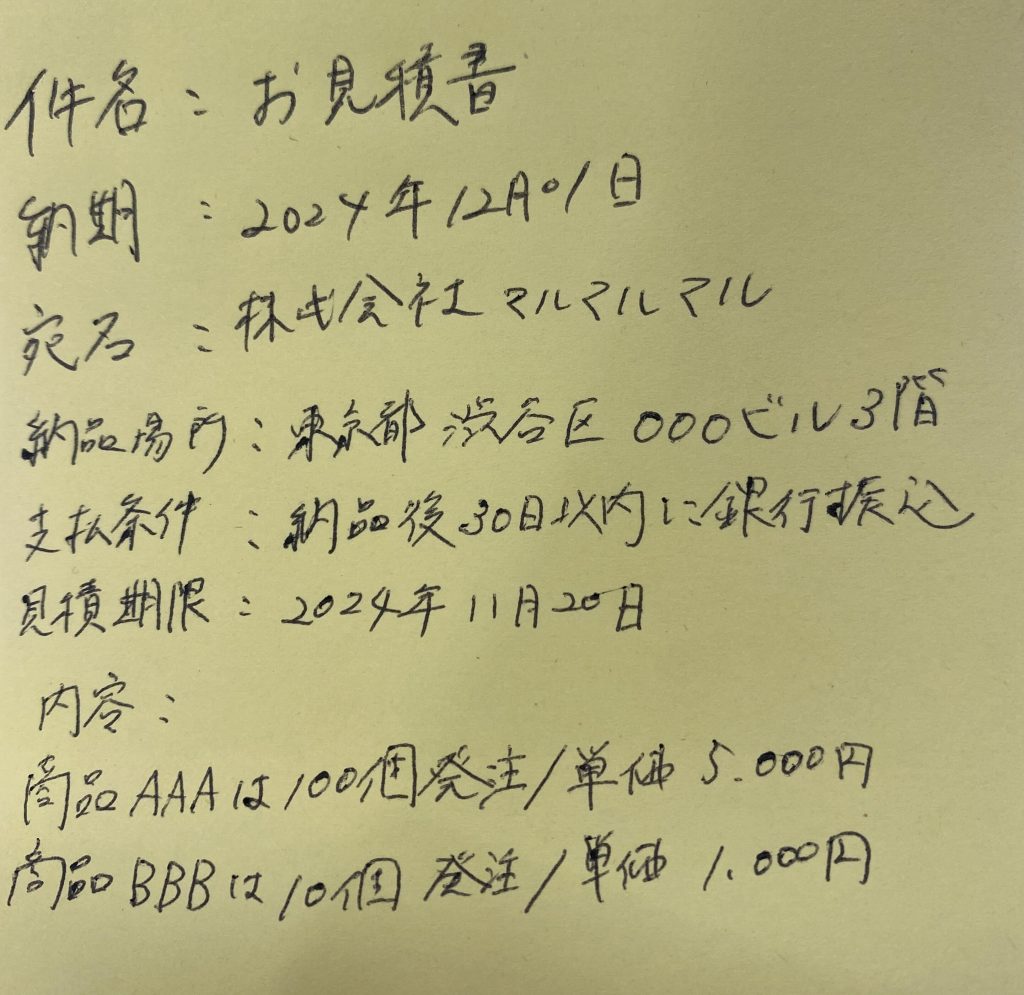 件名：お見積書
納期：2024年12月01日
宛名：株式会社マルマルマル
納品場所：東京都渋谷区000ビル3階
支払条件：納品後30日以内に銀行振込
見積期限：2024年11月20日
内容：
商品AAAは100個発注/単価5.000円
商品BBBは10個発注/単価1.000円